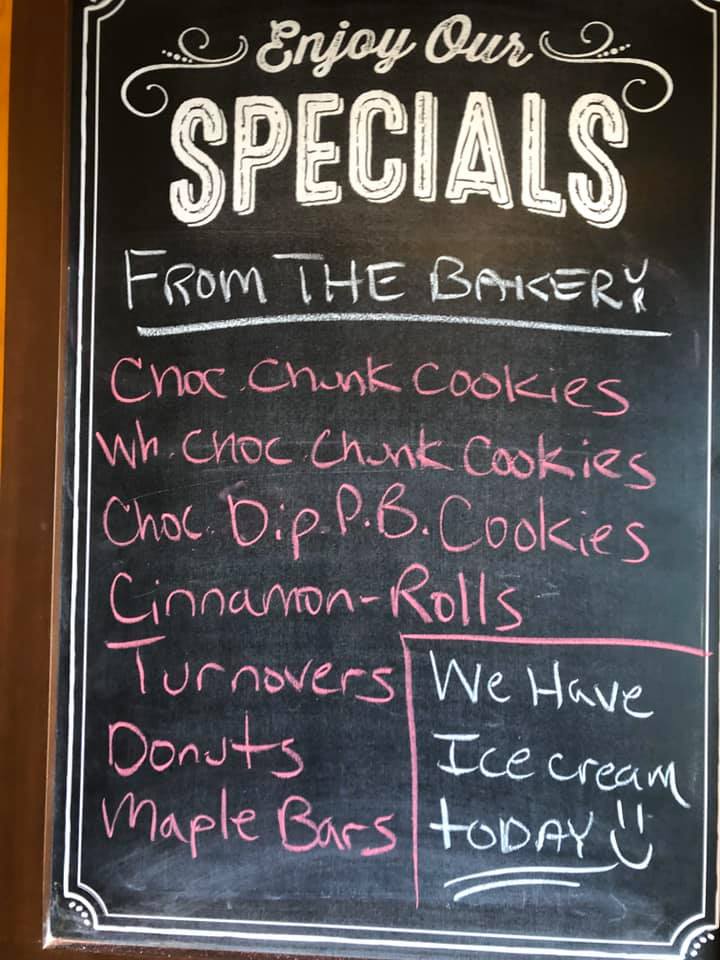 Enjoy Our
SPECIALS
FROM THE BAKERY
Choc. Chunk Cookies
Wh. Choc. Chunk Cookies
Choc. Dip. P.B. Cookies
Cinnamon-Rolls
Turnovers
Donuts
Maple Bars
We Have
Ice cream
toDAY